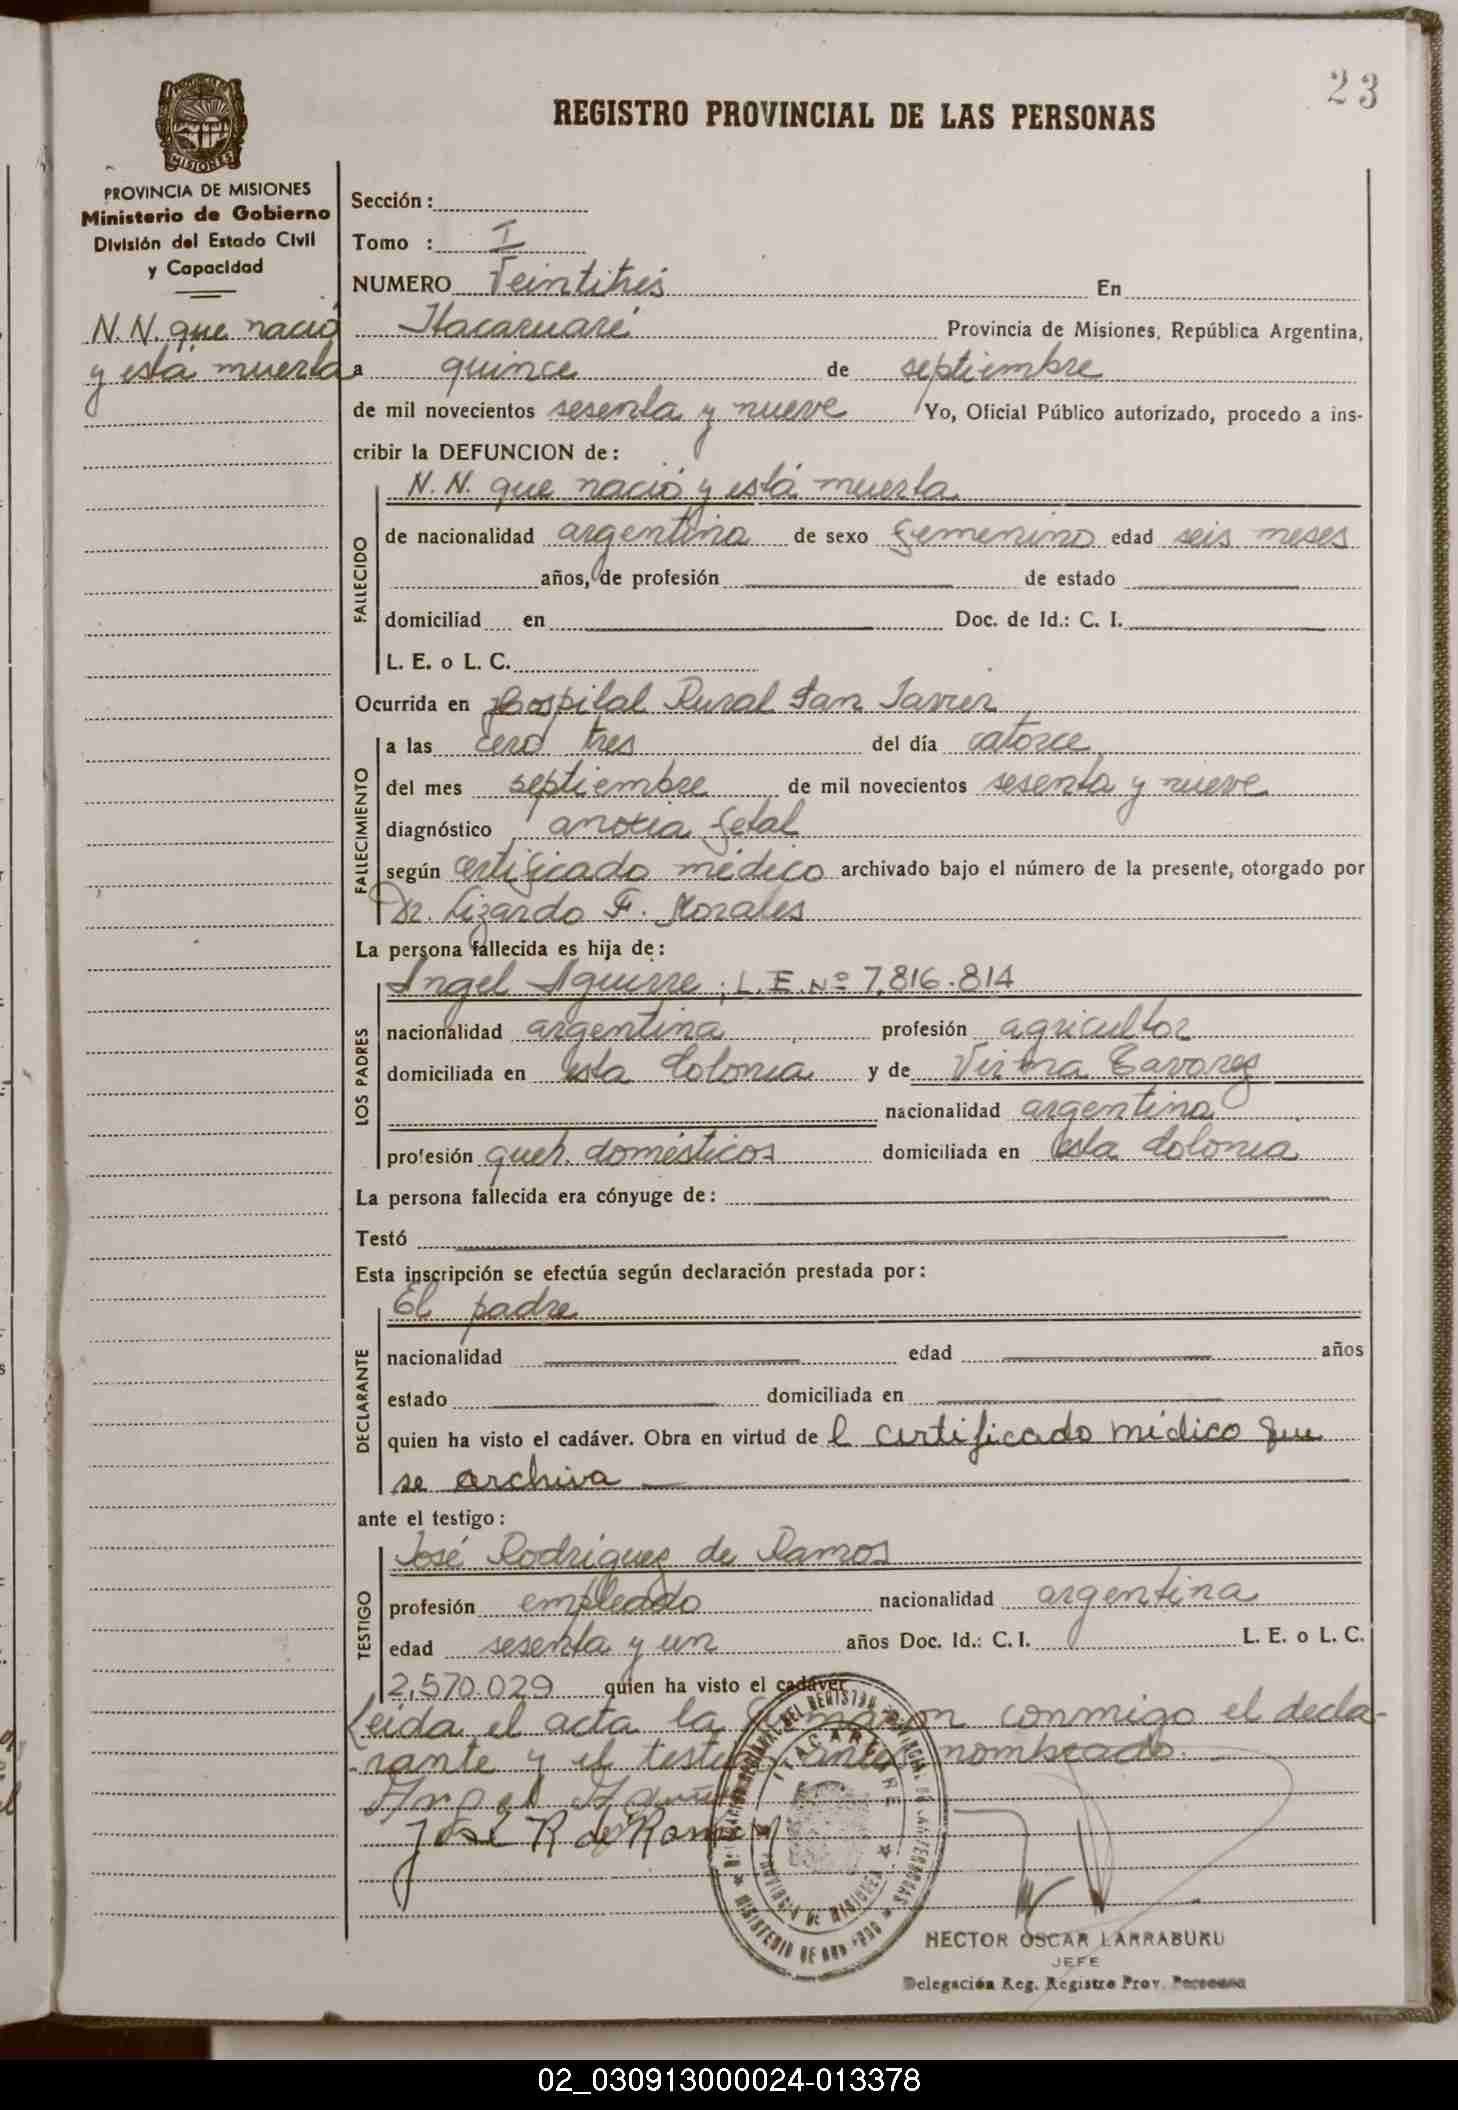 23
REGISTRO PROVINCIAL DE LAS PERSONAS
MISIONES
PROVINCIA DE MISIONES
Ministerio de Gobierno
División del Estado Civil
y Capacidad
N.N. que nació
y está muerta
Sección:
Tomo : I
NUMERO Veintitrés En
Itacaruaré Provincia de Misiones, República Argentina,
a quince de septiembre
de mil novecientos sesenta y nueve Yo, Oficial Público autorizado, procedo a ins-
cribir la DEFUNCION de:
N.N. que nació y está muerta
FALLECIDO
de nacionalidad argentina de sexo femenino edad seis meses
años, de profesión de estado
domiciliad en Doc. de Id.: C. I.
L. E. o L. C.
Ocurrida en Hospital Rural San Javier
FALLECIMIENTO
a las cero tres del día catorce
del mes septiembre de mil novecientos sesenta y nueve
diagnóstico anoxia fetal
según certificado médico archivado bajo el número de la presente, otorgado por
Dr. Lizardo F. Morales
La persona fallecida es hija de:
LOS PADRES
Angel Aguirre; L.E. Nº 7.816.814
nacionalidad argentina profesión agricultor
domiciliada en esta Colonia y de Tavarez
nacionalidad argentina
profesión queh. domésticos domiciliada en esta Colonia
La persona fallecida era cónyuge de:
Testó
Esta inscripción se efectúa según declaración prestada por:
El padre
DECLARANTE
nacionalidad edad años
estado domiciliada en
quien ha visto el cadáver. Obra en virtud de l certificado médico que
se archiva
ante el testigo:
José Rodriguez de Ramos
TESTIGO
profesión empleado nacionalidad argentina
edad sesenta y un años Doc. Id.: C. I. L. E. o L. C.
2.570.029 quien ha visto el cadáver
Leida el acta la conmigo el decla-
rante y el nombrado.
Angel
José R de Ramos
ITACARUARE
PROVINCIA DE MISIONES
MINISTERIO DE GOBIERNO
HECTOR OSCAR LARRABURU
JEFE
Delegación Reg. Registro Prov. Personas
02_030913000024-013378